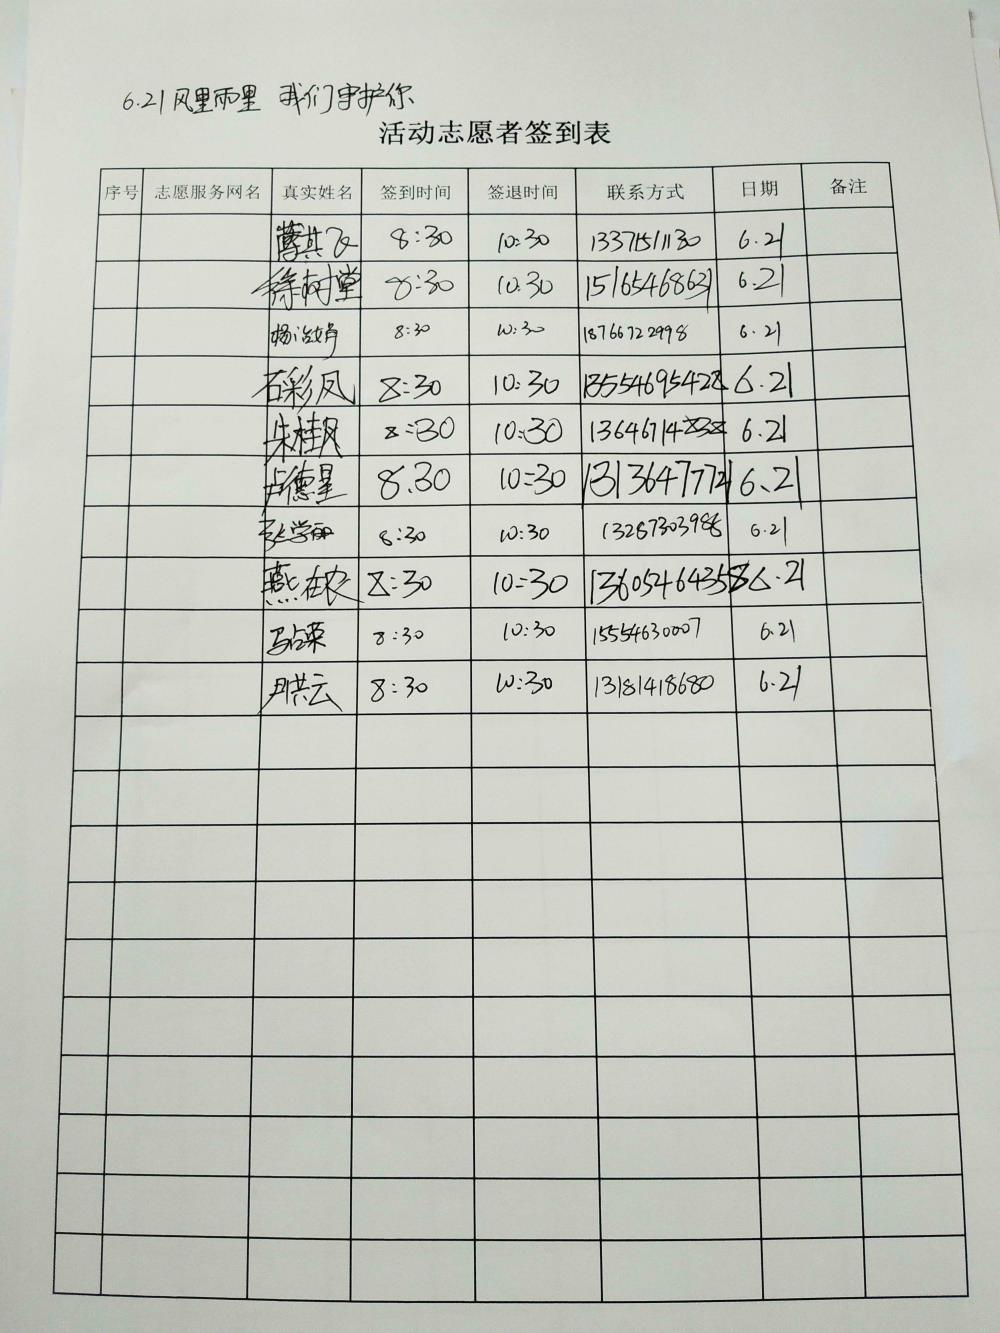 6.21风里雨里 我们守护你
活动志愿者签到表
序号 志愿服务网名 真实姓名 签到时间 签退时间 联系方式 日期 备注
其飞 8:30 10:30 13371511130 6.21
徐树堂 8:30 10:30 15165468631 6.21
杨 8:30 10:30 18766722998 6.21
石彩凤 8:30 10:30 13554695428 6.21
朱桂风 8:30 10:30 13646714838 6.21
卢德星 8.30 10:30 1313647772 6.21
张学丽 8:30 10:30 13287303986 6.21
燕在农 8:30 10:30 13605464358 6.21
马占荣 8:30 10:30 15554630007 6.21
尹洪云 8:30 10:30 13181418680 6.21